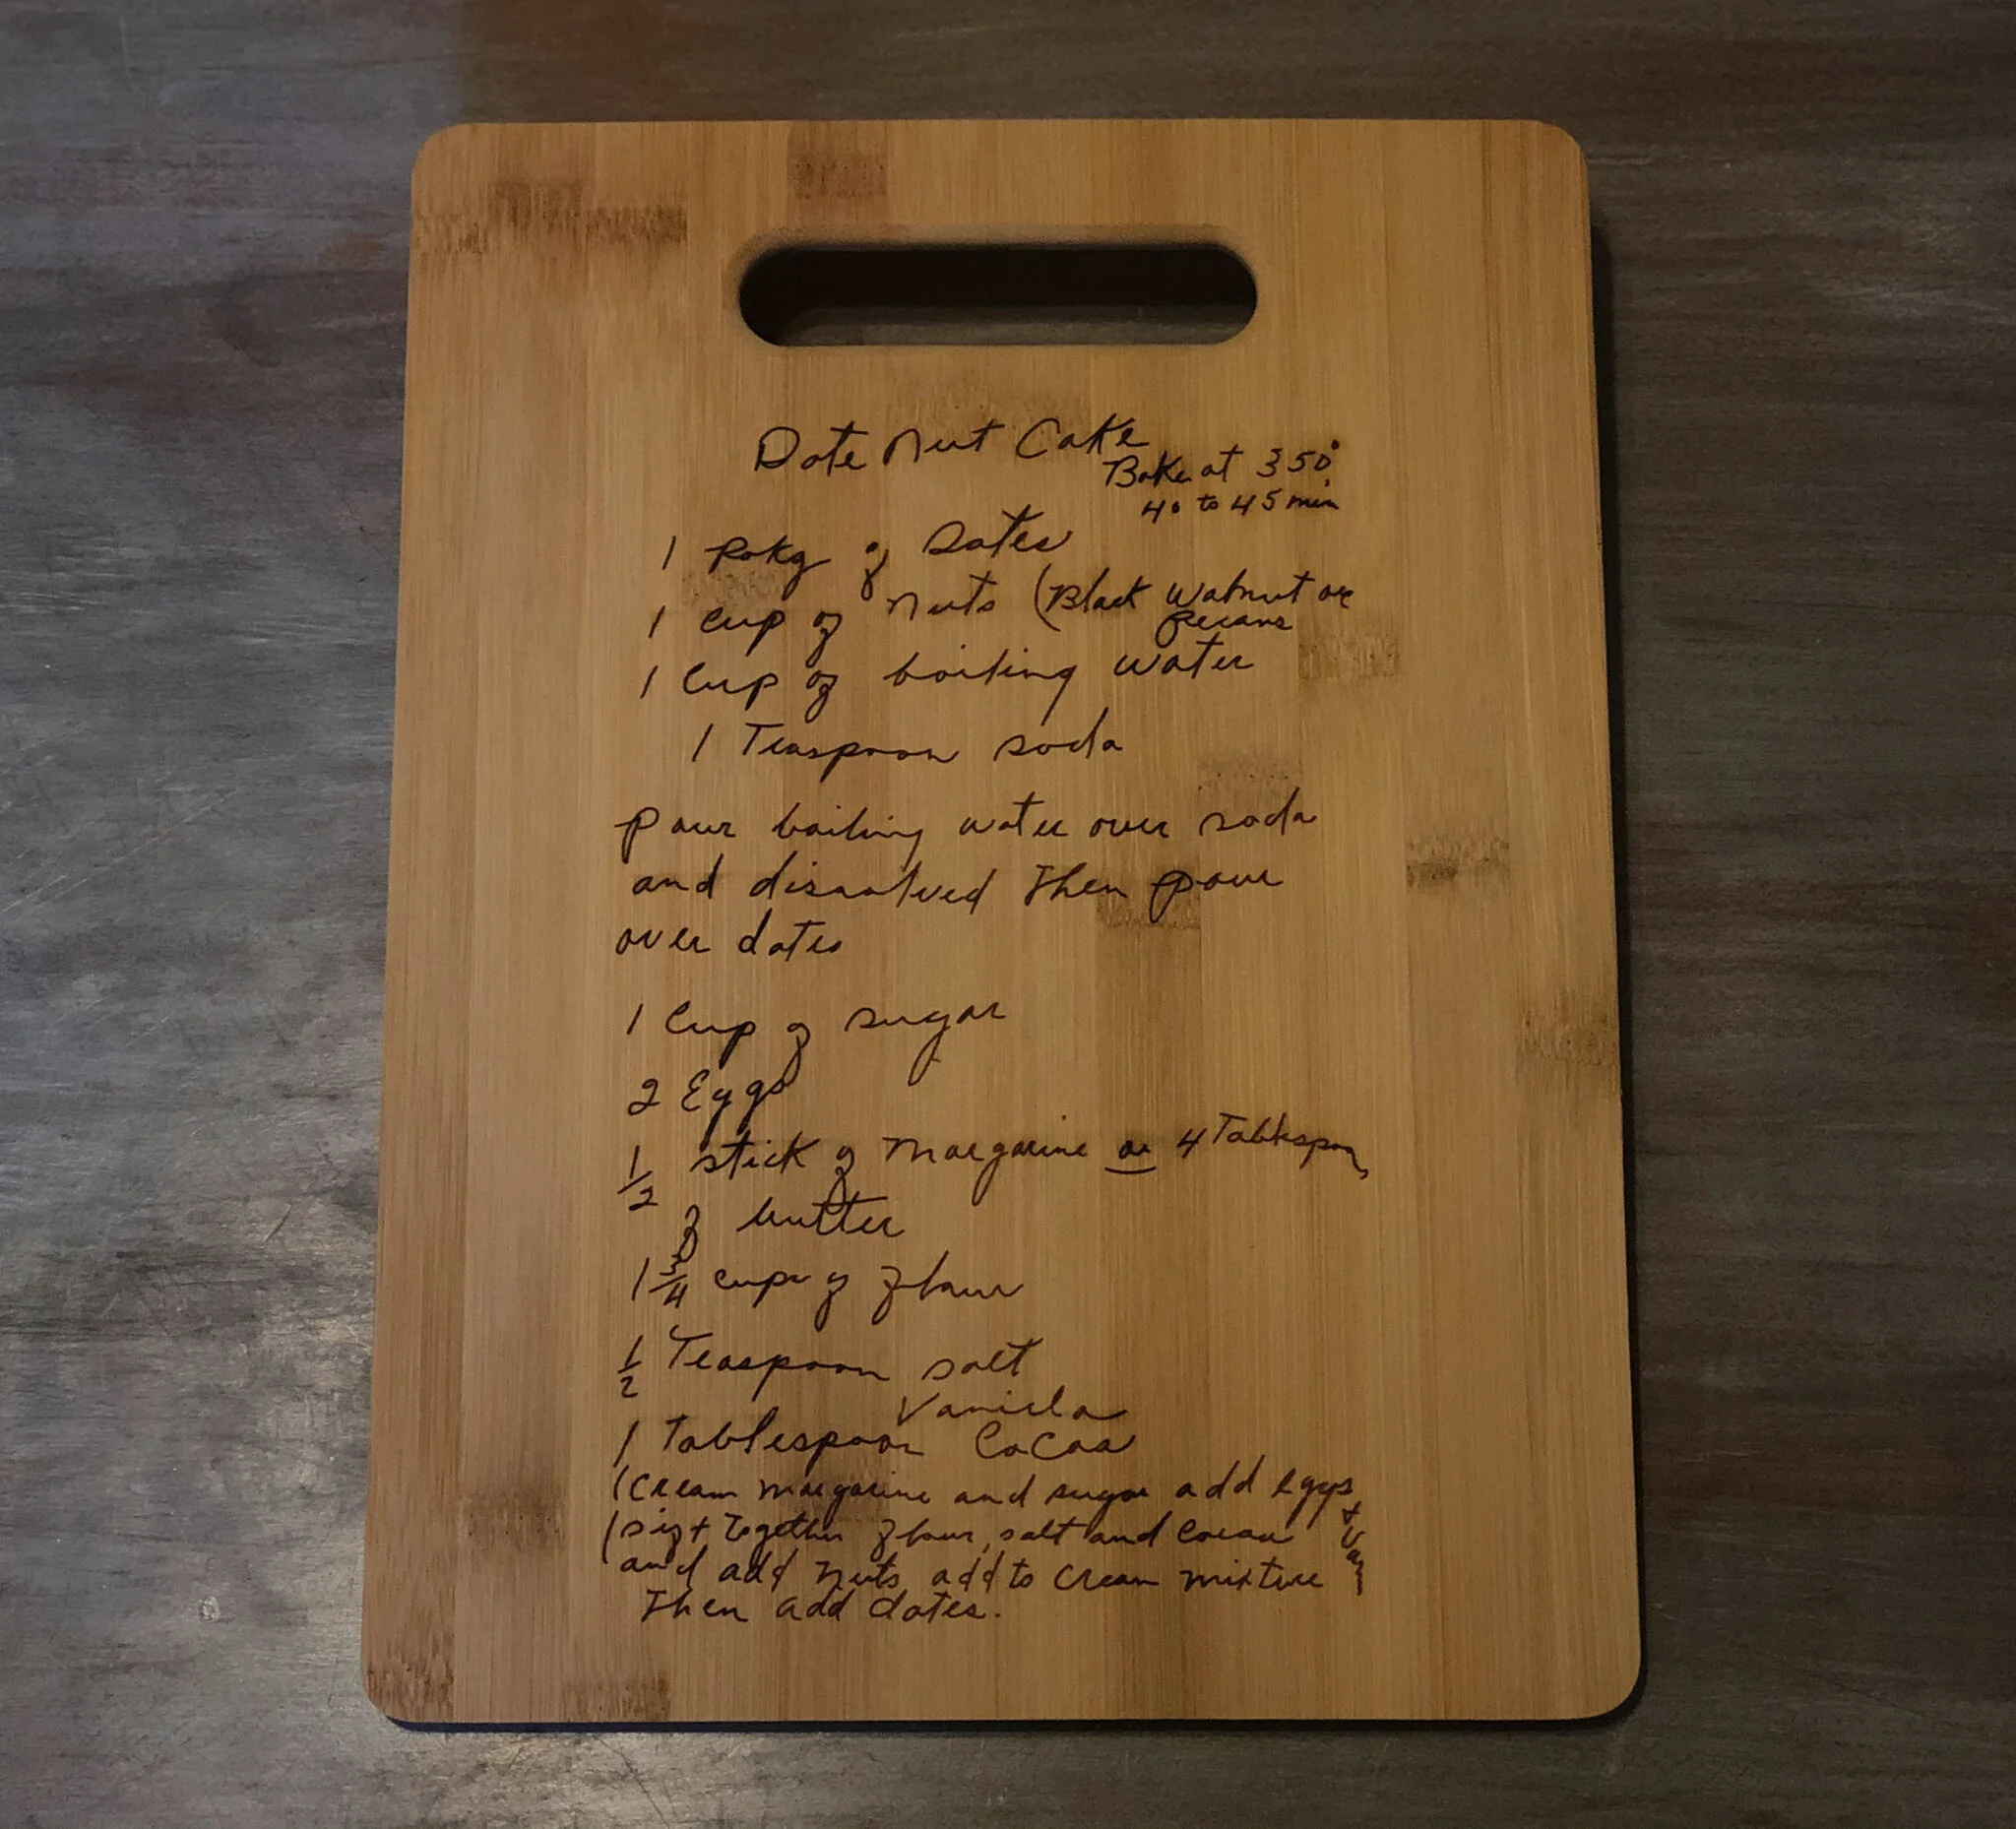 Date Nut Cake
Bake at 350°
40 to 45 min
1 pakg of Dates
1 cup of Nuts (Black Walnut or
Pecans
1 Cup of boiling water
1 Teaspoon soda
pour boiling water over soda
and dissolved Then pour
over dates
1 Cup of sugar
2 Eggs
1/2 stick of Margarine or 4 Tablespoon
of butter
1 3/4 cups of flour
1/2 Teaspoon salt
Vanilla
1 Tablespoon CoCoa
(Cream margarine and sugar add eggs
+ Van
(Sift Together flour, salt and Cocoa
and add Nuts add to Cream mixture
Then add dates.